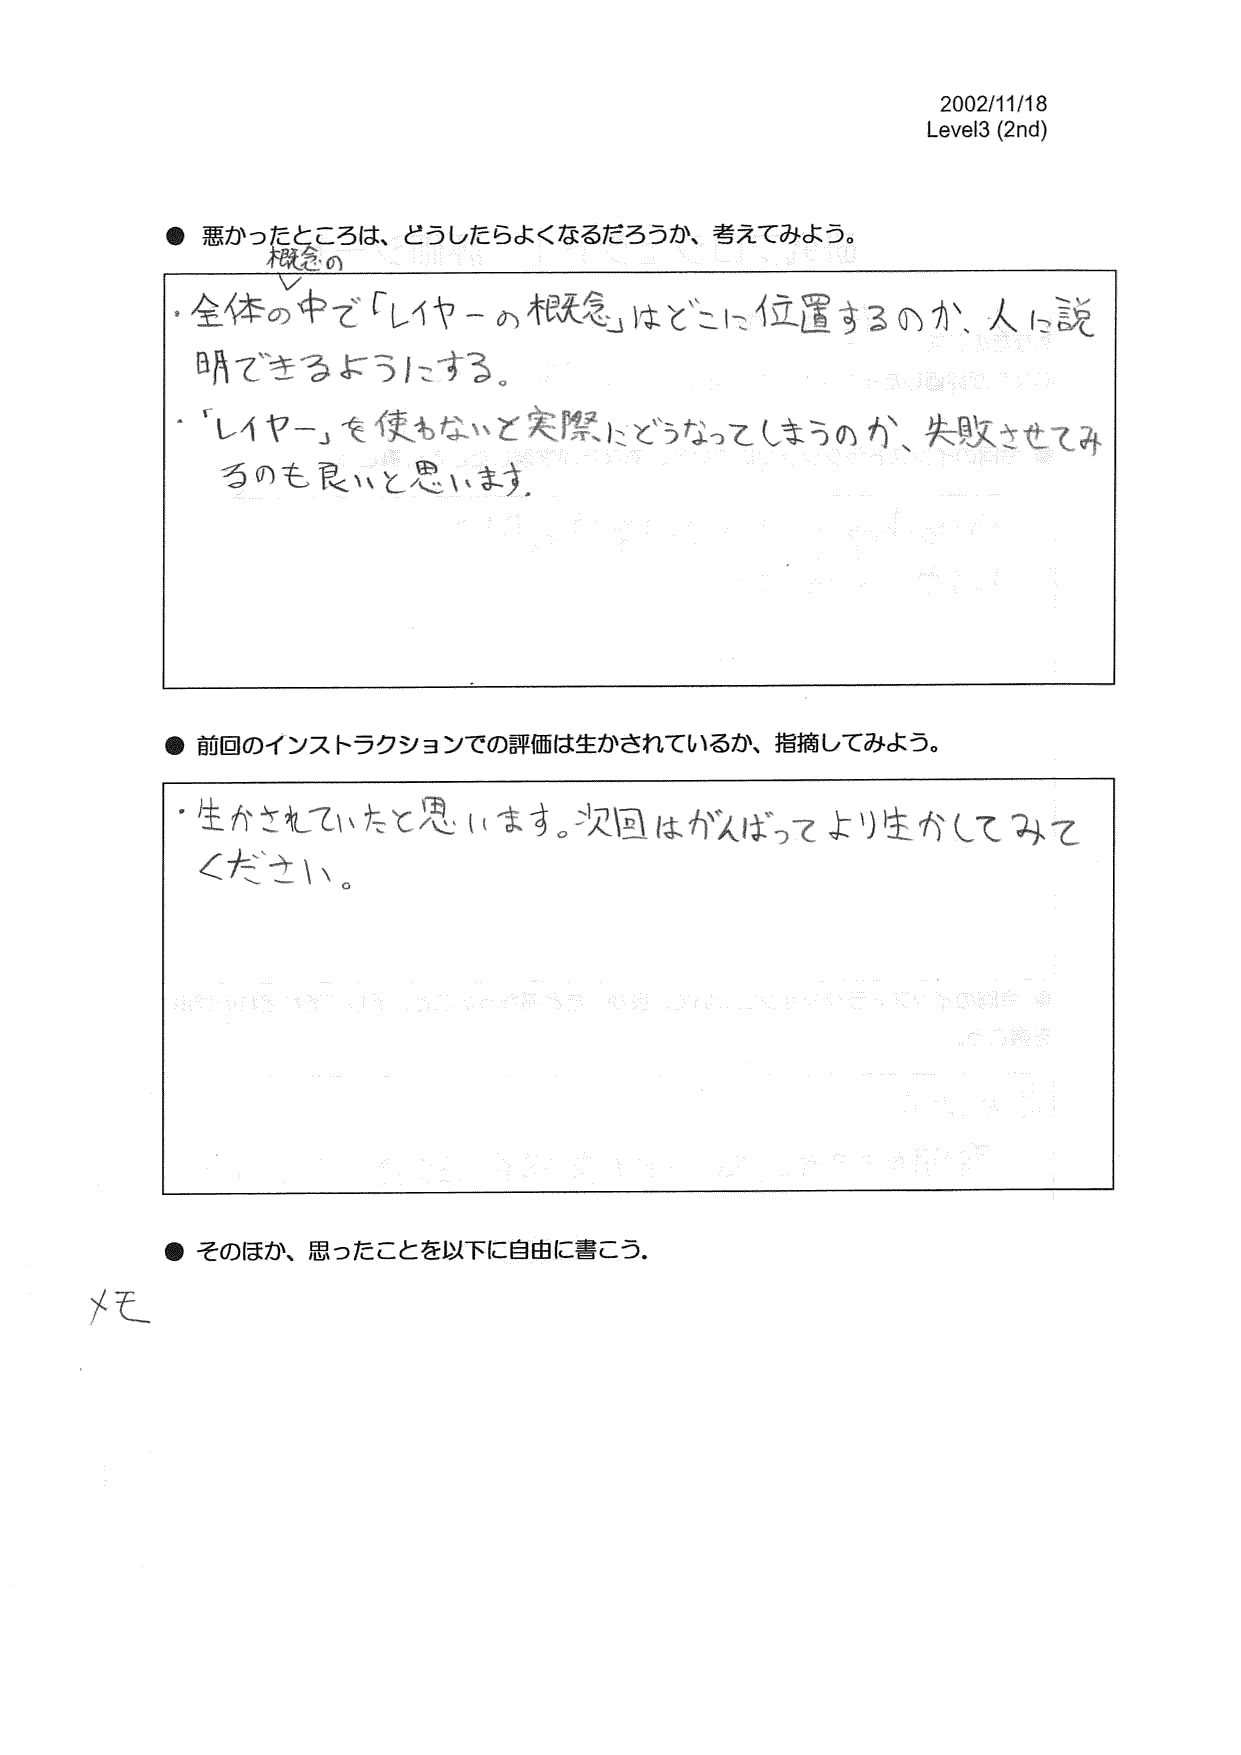 2002/11/18
Level3 (2nd)
● 悪かったところは、どうしたらよくなるだろうか、考えてみよう。
概念の
・全体の中で「レイヤーの概念」はどこに位置するのか、人に説
明できるようにする。
・「レイヤー」を使わないと実際にどうなってしまうのか、失敗させてみ
るのも良いと思います.
● 前回のインストラクションでの評価は生かされているか、指摘してみよう。
・生かされていたと思います。次回はがんばってより生かしてみて
ください。
● そのほか、思ったことを以下に自由に書こう.
メモ